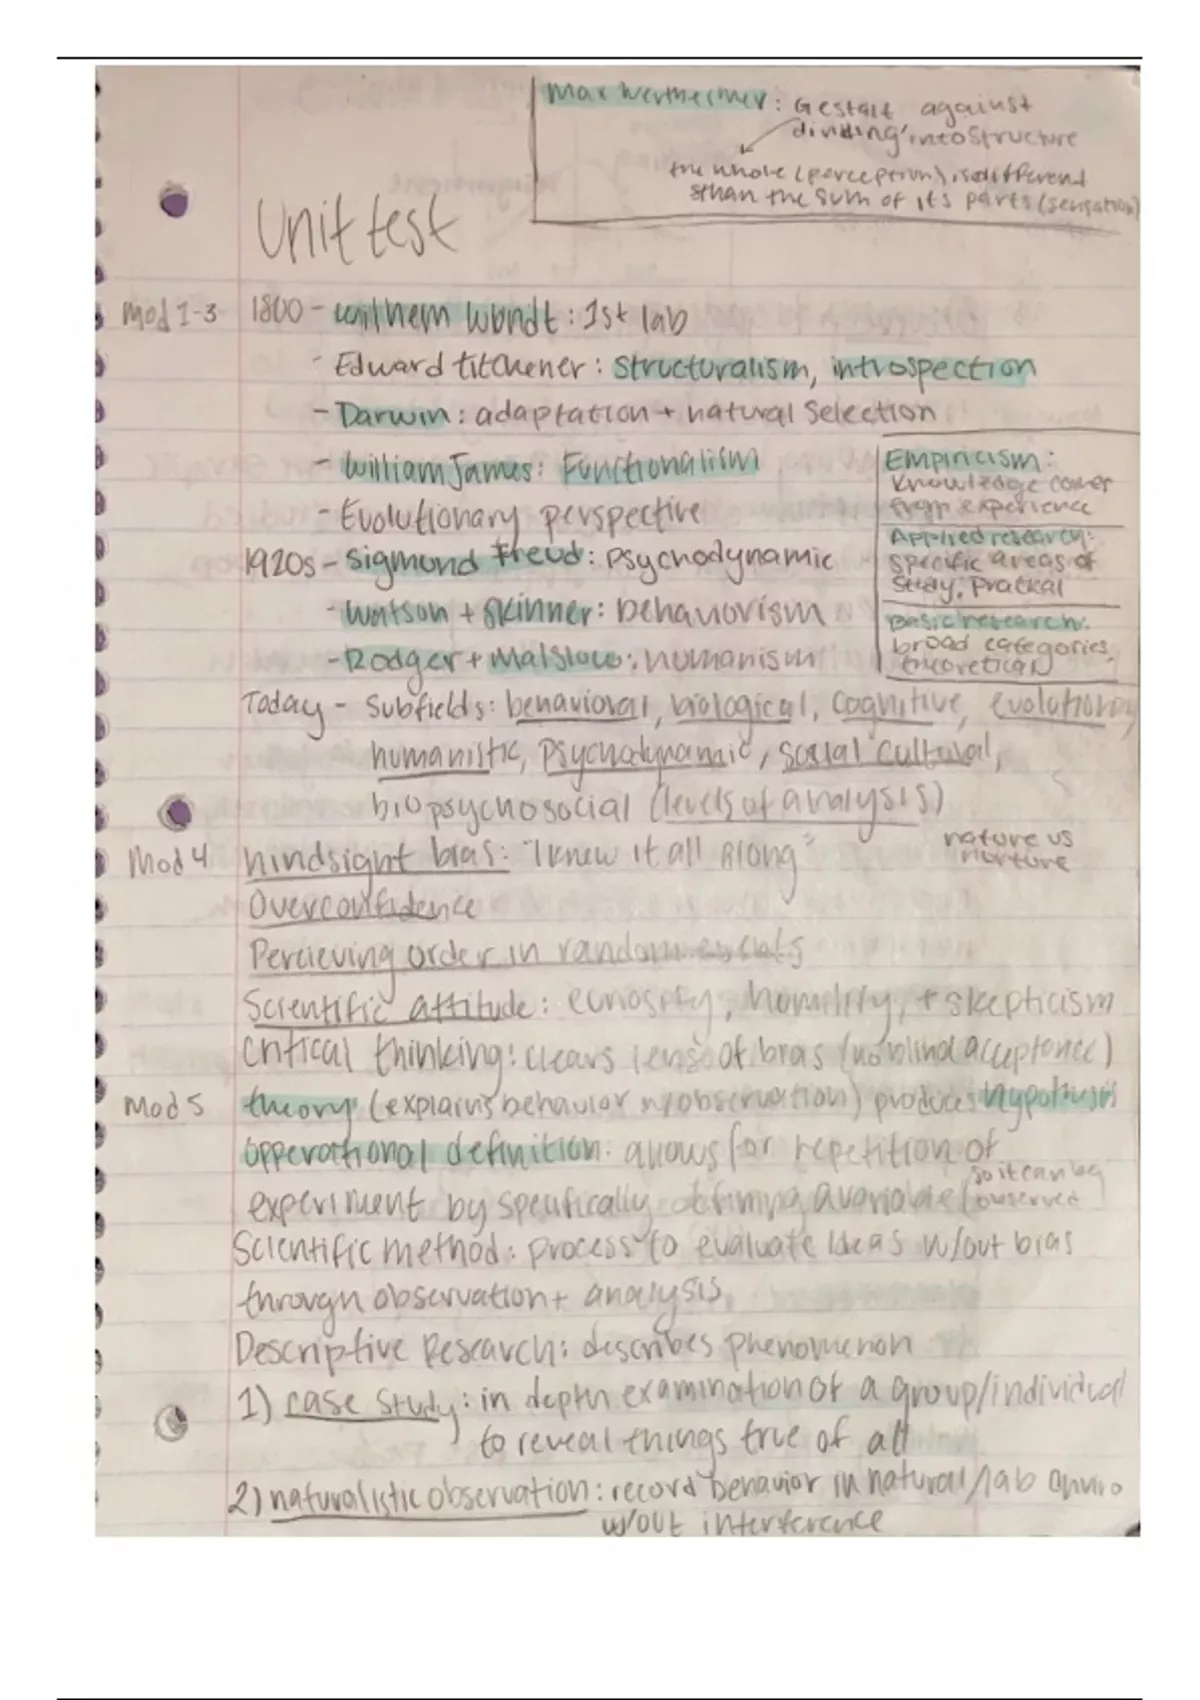 Max Werthermer: Gestalt against
dividing into structure
the whole (perception) is different
than the sum of its parts (sensation)
Unit test
Mod 1-3 1800 - Wilhem Wundt: 1st lab
- Edward titchener: Structuralism, introspection
- Darwin: adaptation + natural Selection
- William James: Functionalism
- Evolutionary perspective
Empiricism:
Knowledge comes
from experience
Applied research:
specific areas of
study; Pratical
Basic research:
broad categories,
theoretical
1920s - Sigmund Freud: Psychodynamic
- Watson + Skinner: behaviorism
- Rodger + Malslow: humanism
Today - Subfields: behavioral, biological, Cognitive, evolutionary
humanistic, Psychodynamic, social cultural,
biopsychosocial (levels of analysis)
nature vs
nurture
Mod 4 hindsight bias: "I knew it all along"
Overconfidence
Percieving order in random events
Scientific attitude: curiosity, humility, + skepticism
Critical thinking: clears lens of bias (no blind acceptance)
Mod 5 theory (explains behavior w/observation) produces hypothesis
Opperational definition: allows for repetition of
experiment by specifically defining a variable (so it can be
observed
Scientific method: process to evaluate ideas w/out bias
through observation + analysis
Descriptive Research: describes phenomenon
1) case study: in depth examination of a group/individual
to reveal things true of all
2) naturalistic observation: record behavior in natural/lab enviro
w/out interference